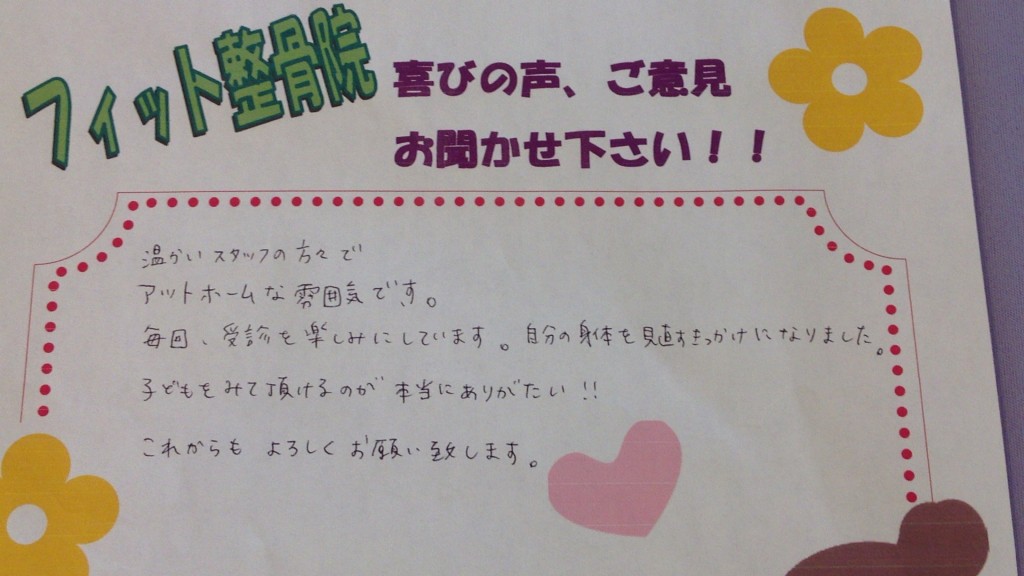 フィット整骨院
喜びの声、ご意見
お聞かせ下さい！！
温かいスタッフの方々で
アットホームな雰囲気です。
毎回、受診を楽しみにしています。自分の身体を見直すきっかけになりました。
子どもをみて頂けるのが本当にありがたい!!
これからもよろしくお願い致します。